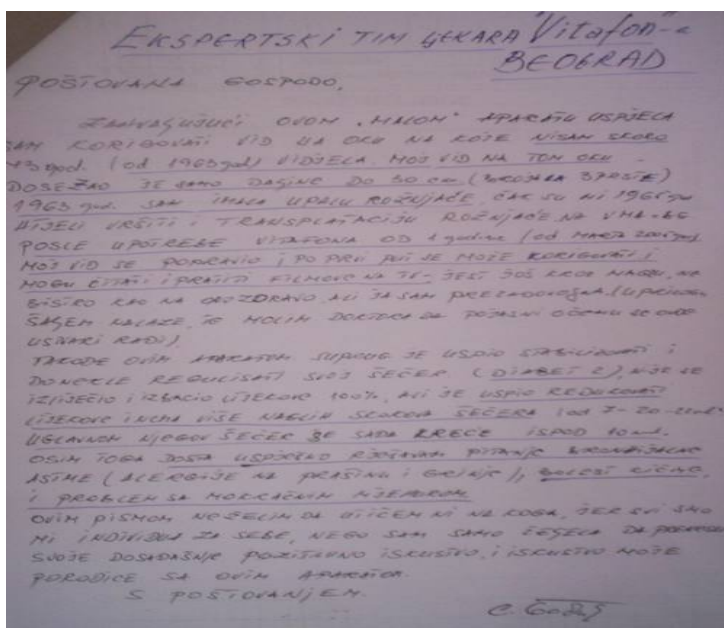 EKSPERTSKI TIM LJEKARA "Vitafon"-a
BEOGRAD
POŠTOVANA GOSPODO,
ZAHVALJUJUĆI OVOM "MALOM" APARATU USPJELA
SAM KORIGOVATI VID NA OKU NA KOJE NISAM SKORO
43 god. (od 1963 god) VIDJELA. MOJ VID NA TOM OKU
DOSEŽAO JE SAMO DALJINE DO 30 cm (BROJALA PRSTE)
1963 god. SAM IMALA UPALU ROŽNJAČE, ČAK SU MI 1965 god
HTJELI VRŠITI I TRANSPLATACIJU ROŽNJAČE NA VMA-BG
POSLE UPOTREBE VITAFONA OD 1 godine (od MARTA
MOJ VID SE POPRAVIO I PO PRVI PUT SE MOŽE KORIGOVATI I
MOGU ČITATI I PRATITI FILMOVE NA TV- JEST JOŠ KROZ MAGLU, NE
BISTRO KAO NA OKO ZDRAVO, ALI JA SAM PREZADOVOLJNA (U PRILOGU
ŠALJEM NALAZE, TE MOLIM DOKTORA DA POJASNI O ČEMU SE OVDE
USTVARI RADI).
TAKOĐE OVIM APARATOM SUPRUG JE USPIO STABILIZOVATI I
DONEKLE REGULISATI SVOJ ŠEĆER. (DIABET 2), NIJE SE
IZLIJEČIO I IZBACIO LIJEKOVE 100%, ALI JE USPIO REDUKOVATI
LIJEKOVE I NEMA VIŠE NAGLIH SKOKOVA ŠEĆERA (od 7-20-
UGLAVNOM NJEGOV ŠEĆER SE SADA KREĆE ISPOD 10
OSIM TOGA DOSTA USPJEŠNO RJEŠAVAM PITANJE BRONHIJALNE
ASTME (ALERGIJE NA PRAŠINU I GRINJE), BOLEST KIČME,
I PROBLEM SA MOKRAĆNIM MJEHUROM
OVIM PISMOM NE ŽELIM DA UTIČEM NI NA KOGA, JER SVI SMO
MI INDIVIDUA ZA SEBE, NEGO SAM SAMO ŽELJELA DA PRENESEM
SVOJE DOSADAŠNJE POZITIVNO ISKUSTVO, I ISKUSTVO MOJE
PORODICE SA OVIM APARATOM.
S POŠTOVANJEM.